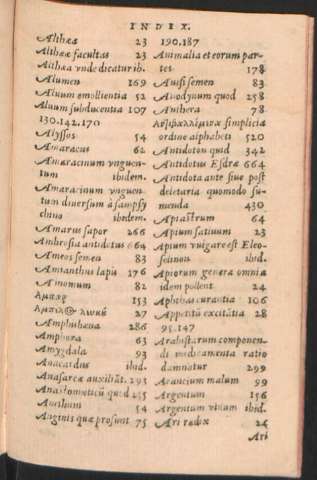 INDEX.
Althæa 23
Althææ facultas 23
Althæa vnde dicatur ib.
Alumen 169
Aluum emollientia 52
Aluum subducentia 107
130.142.170
Alyssos 54
Amaracus 62
Amaracinum vnguen-
tum ibidem.
Amaracinum vnguen-
tum diuersum à sampsy
chino ibidem.
Amarus sapor 266
Ambrosia antidotus 664
Ameos semen 83
Amianthus lapis 176
Amomum 82
153
27
Amphisbæna 286
Amphora 63
Amygdala 93
Anacardus ibid.
Anasarcæ auxiliāt. 293
Anastomoticū quod 255
Anethum 54
Anginis quæ prosunt 75
190.187
Animalia et eorum par-
tes 178
Anisi semen 83
Anodynum quod 258
Anthera 78
simplicia
ordine alphabeti 520
Antidoton quid 342
Antidotus Esdræ 664
Antidota ante siue post
deletaria quomodo su-
menda 430
Apiastrum 64
Apium satiuum 23
Apium vulgare est Eleo-
selinon ibid.
Apiorum genera omnia
idem pollent 24
Aphthas curantia 106
Appetitū excitātia 28
95.147
Arabistarum componen-
di medicamenta ratio
damnatur 299
Arancium malum 99
Argentum 156
Argentum viuum ibid.
Ari radix 24
Ari